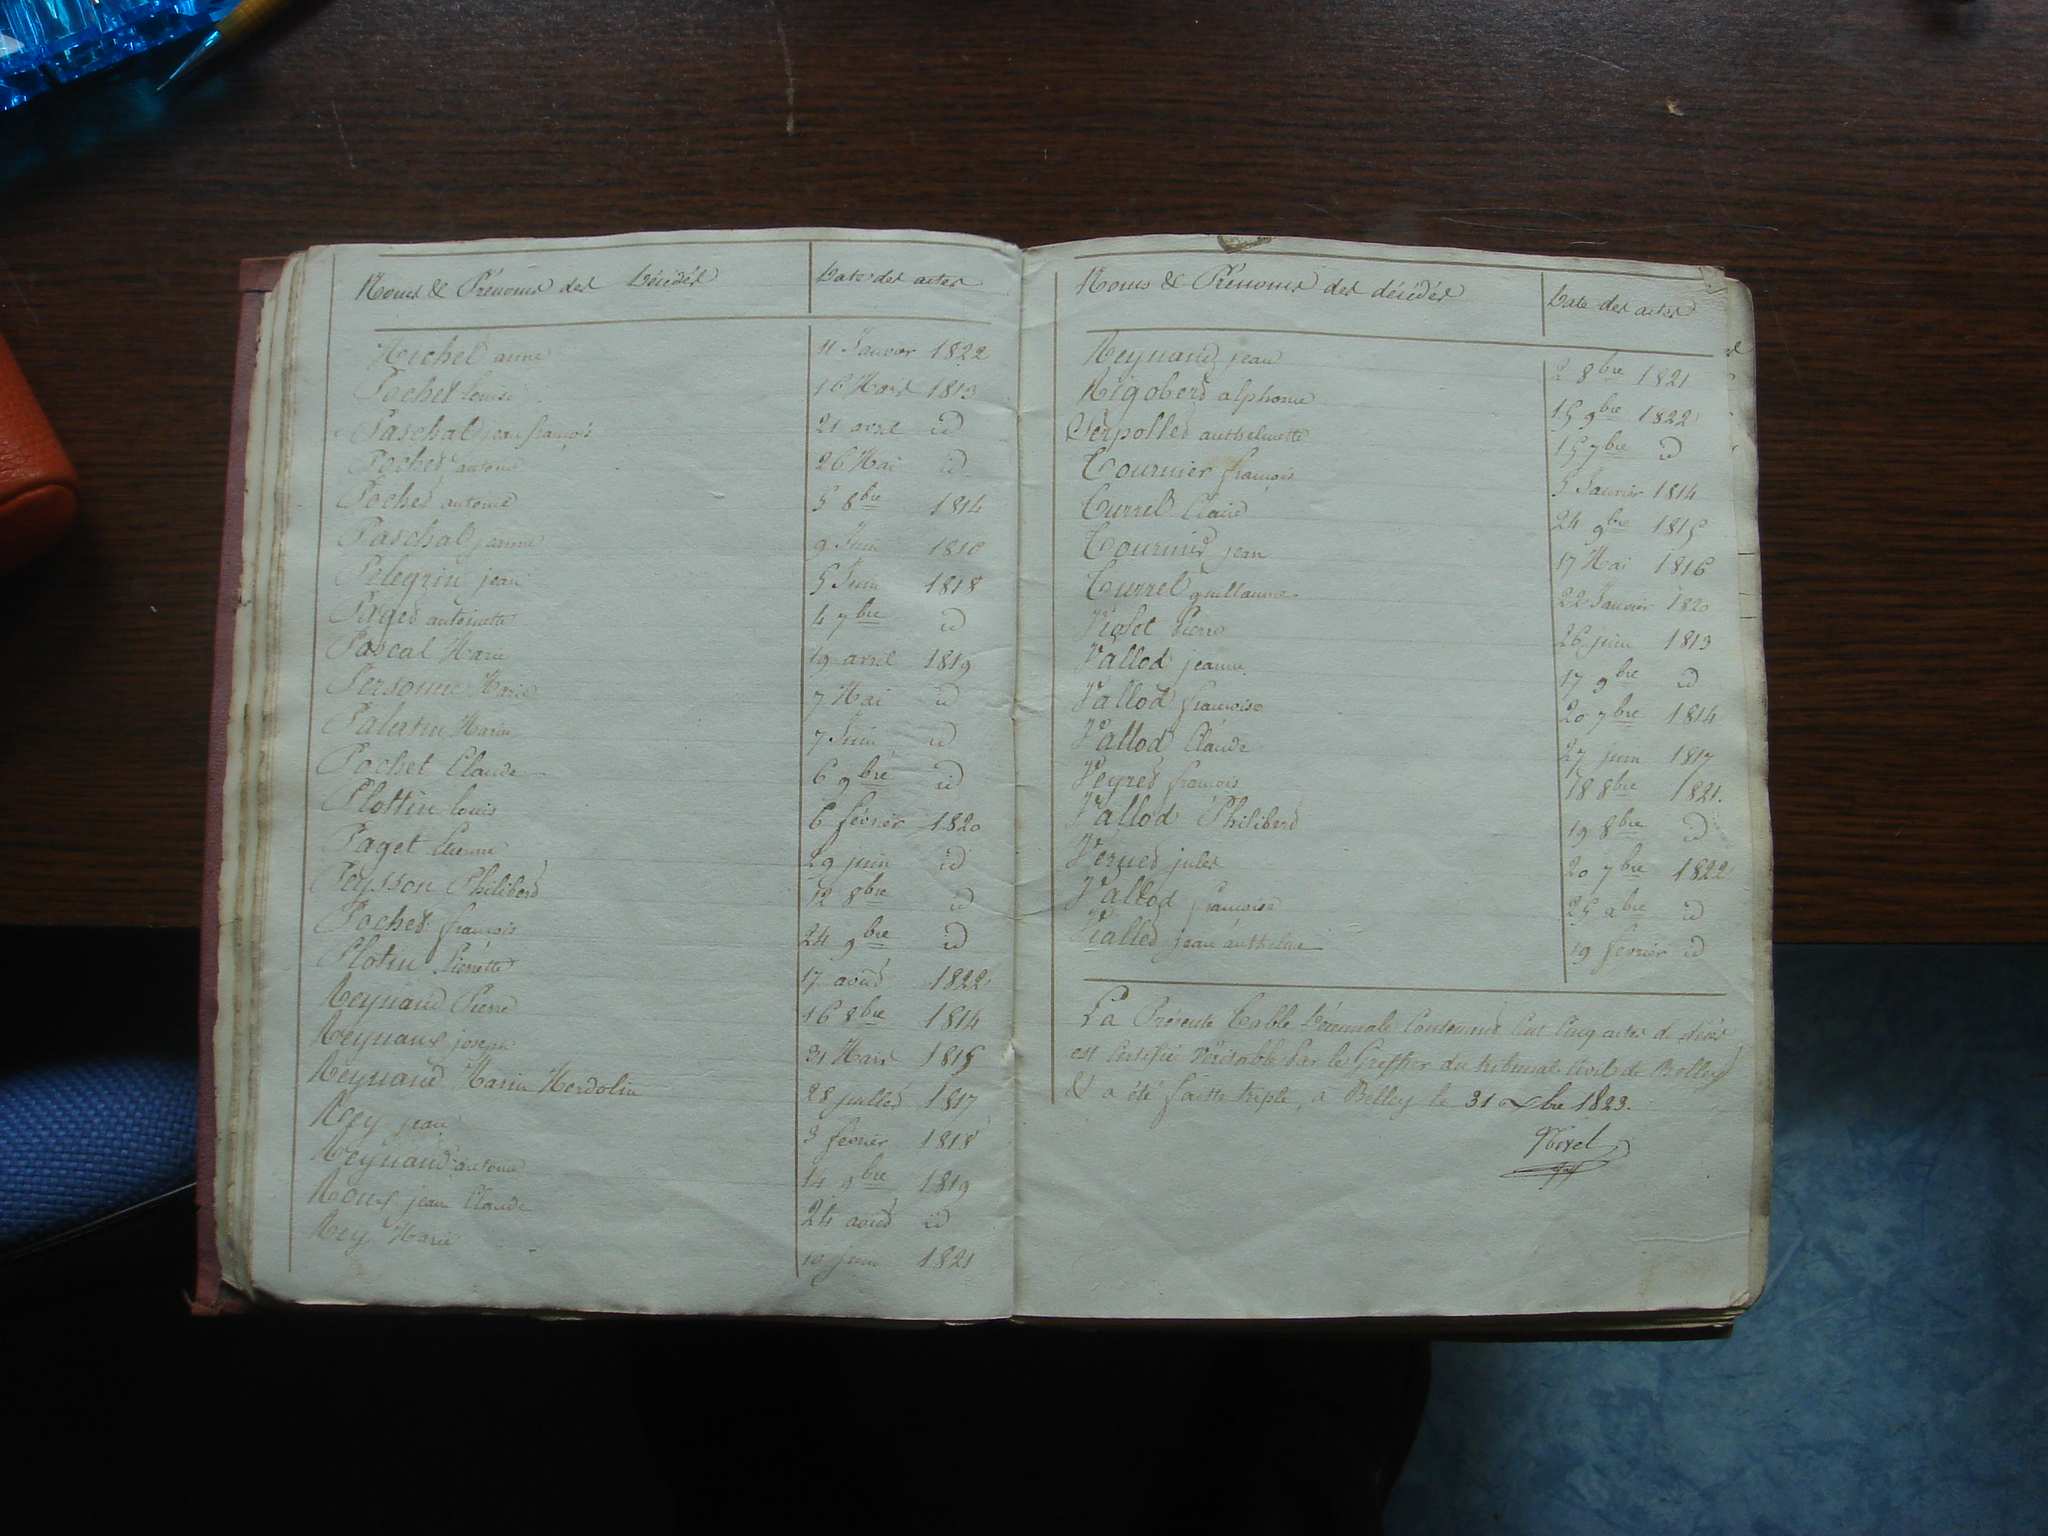 Noms & Prénoms des Décédés Date des actes
Michel anne 11 Janvier 1822
Pochet Louise 16 Mars 1813
Paschal jean françois 21 avril id
Pochet antoine 26 Mai id
Pochet antoine 5 8bre 1814
Paschal jeanne 9 Juin 1816
Pelegrin jean 5 Juin 1818
Pirget antoinette 4 7bre id
Pascal Marie 19 avril 1819
Personne Marie 7 Mai id
Marie 7 Juin id
Pochet Claude 6 9bre id
Plottin Louis 6 février 1820
Paget 29 juin id
Peysson Philiberd 12 8bre id
Pochet françois 24 9bre id
Plotin Pierrette 17 aoud 1822
Reynaud Pierre 16 8bre 1814
Reynaud joseph 31 Mars 1815
Reynaud Marin 28 juilled 1817
Rey jean 3 février 1818
Reynaud antoine 14 9bre 1819
Roux jean Claude 24 aoud id
Rey Marie 10 Juin 1821
Noms & Prénoms des décédés Date des actes
Reynaud jean 2 8bre 1821
Rigoberd alphonse 15 9bre 1822
Serpolled anthelmette 15 7bre id
Tournier françois 5 Janvier 1814
Turrel Claire 24 9bre 1815
Tournier jean 17 Mai 1816
Turrel guillaume 22 Janvier 1820
Violet Pierre 26 juin 1813
Vallod jeanne 17 9bre id
Vallod françoise 20 7bre 1814
Vallod Claude 27 juin 1817
Veyred françois 18 8bre 1821.
Vallod Philiberd 19 8bre id
jules 20 7bre 1822
Vallod françoise 25 9bre id
Vialled jean anthelme 19 février id
La Présente Table Décennale Contenant Cent Cinq actes de décès
est Certifié Véritable Par le Greffier du tribunal Civil de Belley
& a été faitte triple, a Belley le 31 xbre 1823.